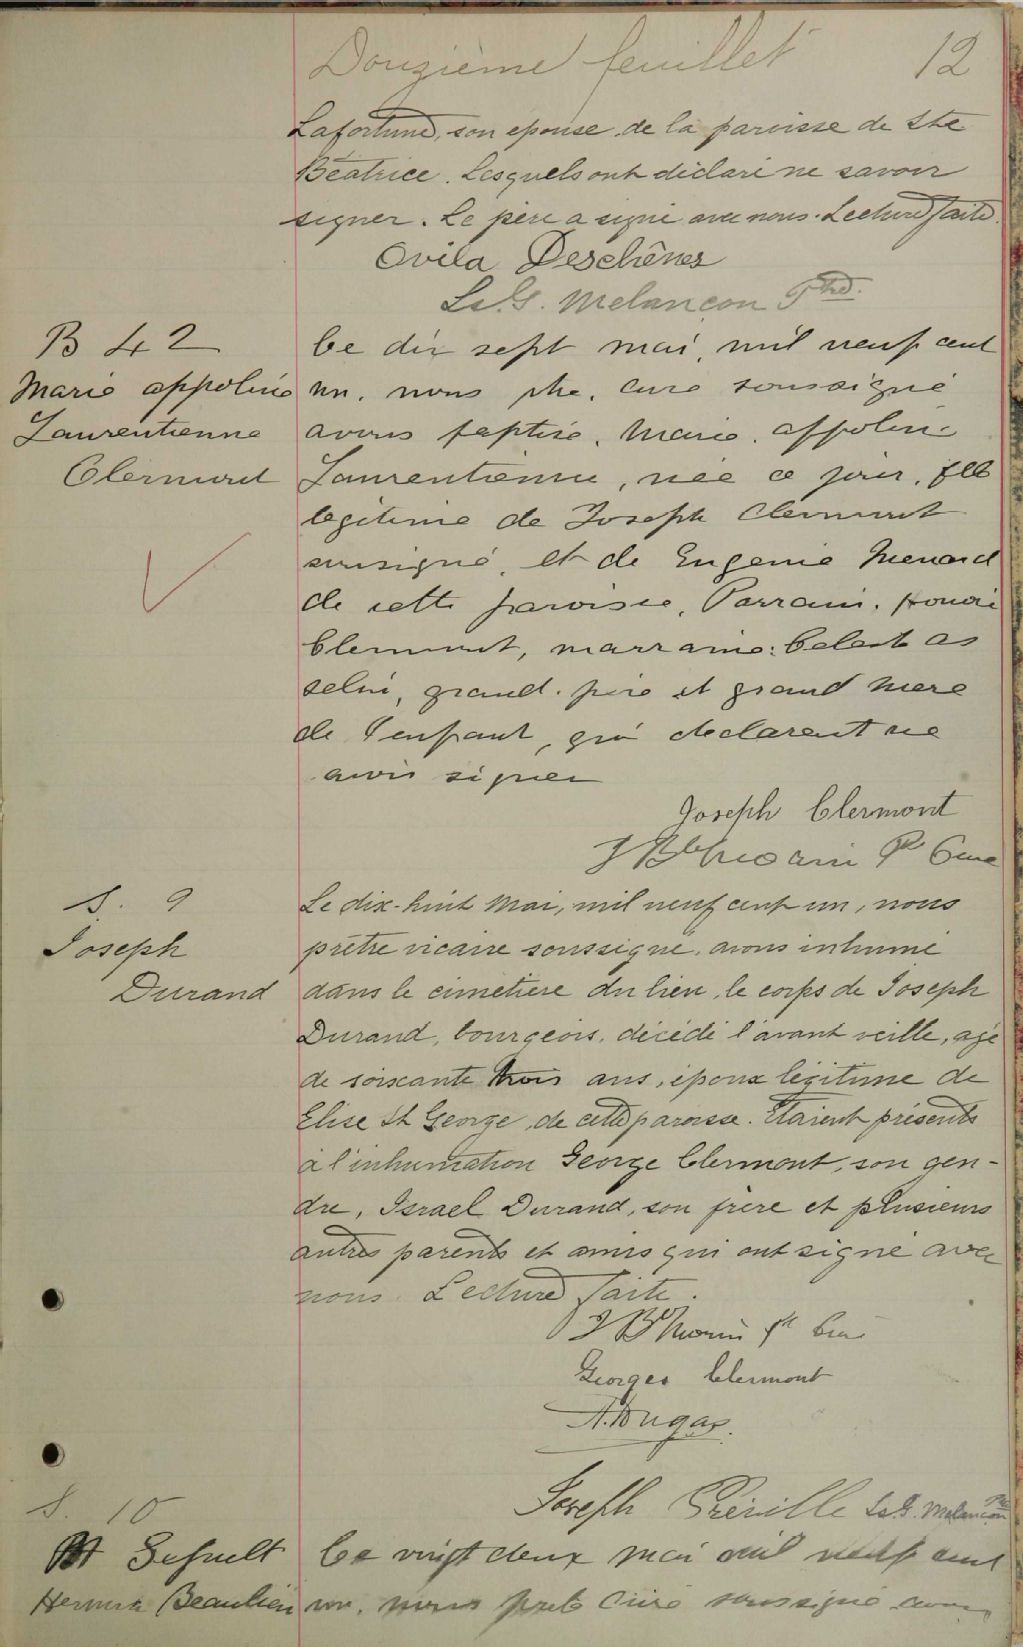 Douzième feuillet 12
Lafortune, son epouse de la paroisse de Ste
Béatrice. Lesquels ont déclaré ne savoir
signer. Le père a signé avec nous. Lecture faite.
Ovila Deschênes
L. G. Melançon Ptre.
B 42
Marie appoline
Laurentienne
Clermont
Ce dix sept mai, mil neuf cent
un, nous ptre, curé soussigné
avons baptisé, Marie, appoline
Laurentienne, née ce jour, fille
legitime de Joseph Clermont
soussigné, et de Eugenie Menard
de cette paroisse, Parrain,
Clermont, marraine:
grand-père et grand mere
de l'enfant, qui declarent ne
savoir signer
Joseph Clermont
J Bte Morin Ptre Cure
S. 9
Joseph
Durand
Le dix-huit Mai, mil neuf cent un, nous
prêtre vicaire soussigné, avons inhumé
dans le cimetière du lieu, le corps de Joseph
Durand, bourgeois, décédé l'avant veille, agé
de soixante trois ans, époux légitime de
Elise St George, de cette paroisse. Etaient présents
à l'inhumation George Clermont, son gen-
dre, Israel Durand, son frère et plusieurs
autres parents et amis qui ont signé avec
nous. Lecture faite.
J Bte Morin Ptr Curé
Georges Clermont
A. Dugas.
Joseph Préville L. G. Melançon Ptre
S. 10
Sepult
Beaulieu
Ce vingt deux mai mil neuf cent
un, nous prêtre Curé soussigné avons